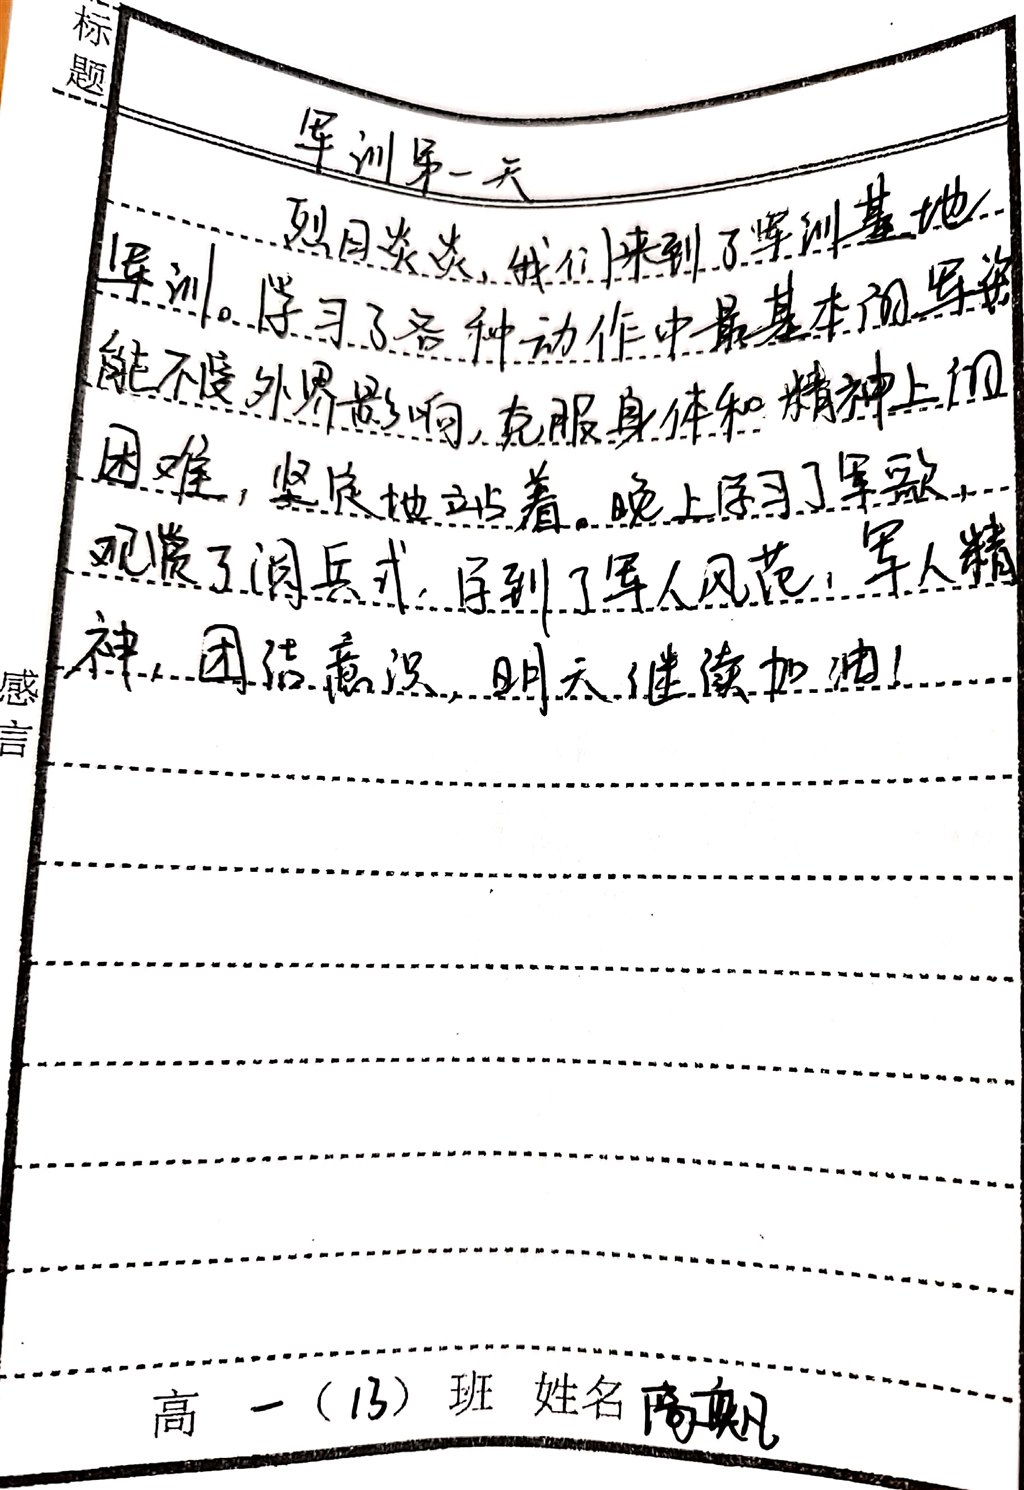 标
题
军训第一天
烈日炎炎,我们来到了军训基地
军训。学习了各种动作中最基本的军姿
能不受外界影响,克服身体和精神上的
困难,坚定地站着。晚上学习了军歌,
观赏了阅兵式,学到了军人风范,军人精
神,团结意识,明天继续加油!
感
言
高一(13)班 姓名